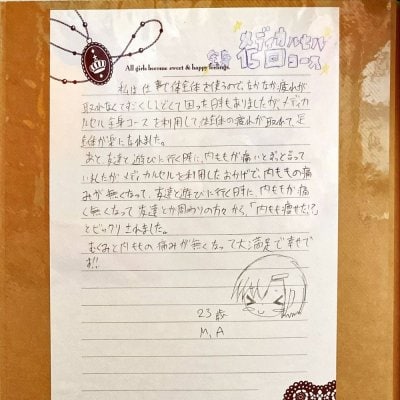 メディカルセル
全身 15回コース
All girls become sweet & happy feelings.
私は仕事で体全体を使うので、なかなか疲れが
取れなくてむくしんどくて困った日もありましたが、メディ
カルセル全身コースを利用して、体全体の疲れが取れて足
全体が楽になれました。
あと、友達と遊びに行く際に、内ももが痛いとずっと言って
いましたがメディカルセルを利用したおかげで、内ももの痛
みが無くなって、友達と遊びに行く時に、内ももが痛
く無くなって友達とか周わりの方々から、「内もも痩せた!?」
とビックリされました。
むくみと内ももの痛みが無くなって大満足で幸せで
す!!
23歳
M.A